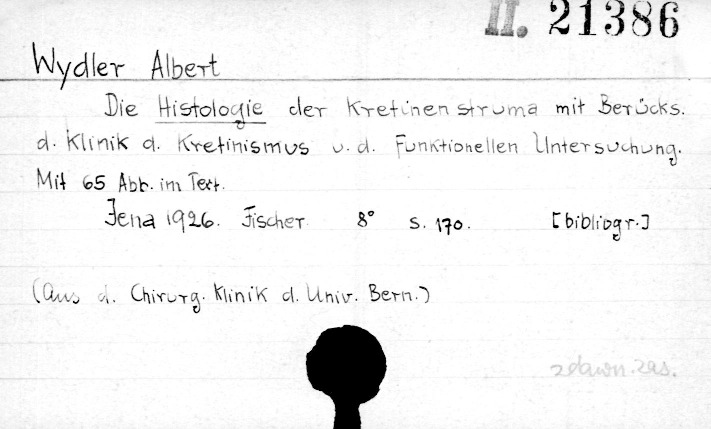 II. 21386
Wydler Albert
Die Histologie der Kretinenstruma mit Berücks.
d. Klinik d. Kretinismus u. d. Funktionellen Untersuchung.
Mit 65 Abb. im Text.
Jena 1926. Fischer 8° S. 170. [bibliogr.]
(Aus d. Chirurg. Klinik d. Univ. Bern.)
zdawn. zas.